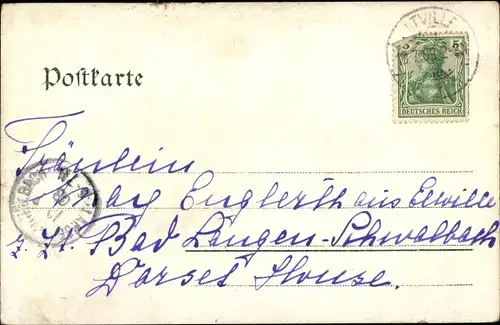 LTVILLE
5 5
DEUTSCHES REICH
Postkarte
Fräulein
May Englerth aus Elville
z. Zt. Bad Langen-Schwalbach
Dorset House.